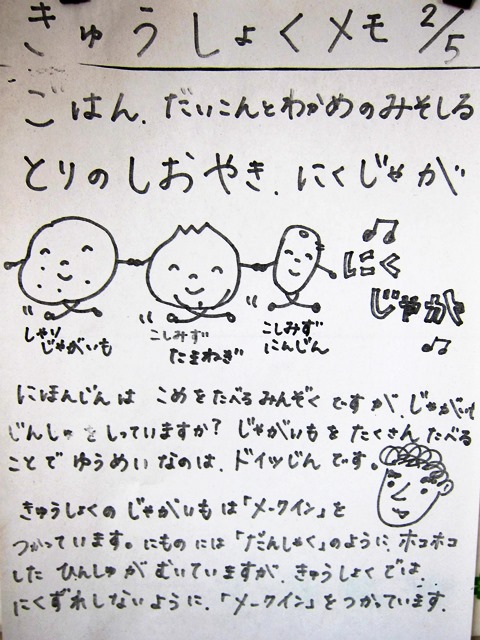 きゅうしょくメモ 2/5
ごはん、だいこんとわかめのみそしる
とりのしおやき、にくじゃが
にく
じゃが
しゃり
じゃがいも
こしみず
たまねぎ
こしみず
にんじん
にほんじんは こめをたべるみんぞくですが、じゃがいも
じんしゅをしっていますか? じゃがいもをたくさんたべる
ことでゆうめいなのは、ドイツじんです。
きゅうしょくのじゃがいもは「メークイン」を
つかっています。にものには「だんしゃく」のように、ホコホコ
したひんしゅがむいていますが、きゅうしょくでは
にくずれしないように、「メークイン」をつかっています.